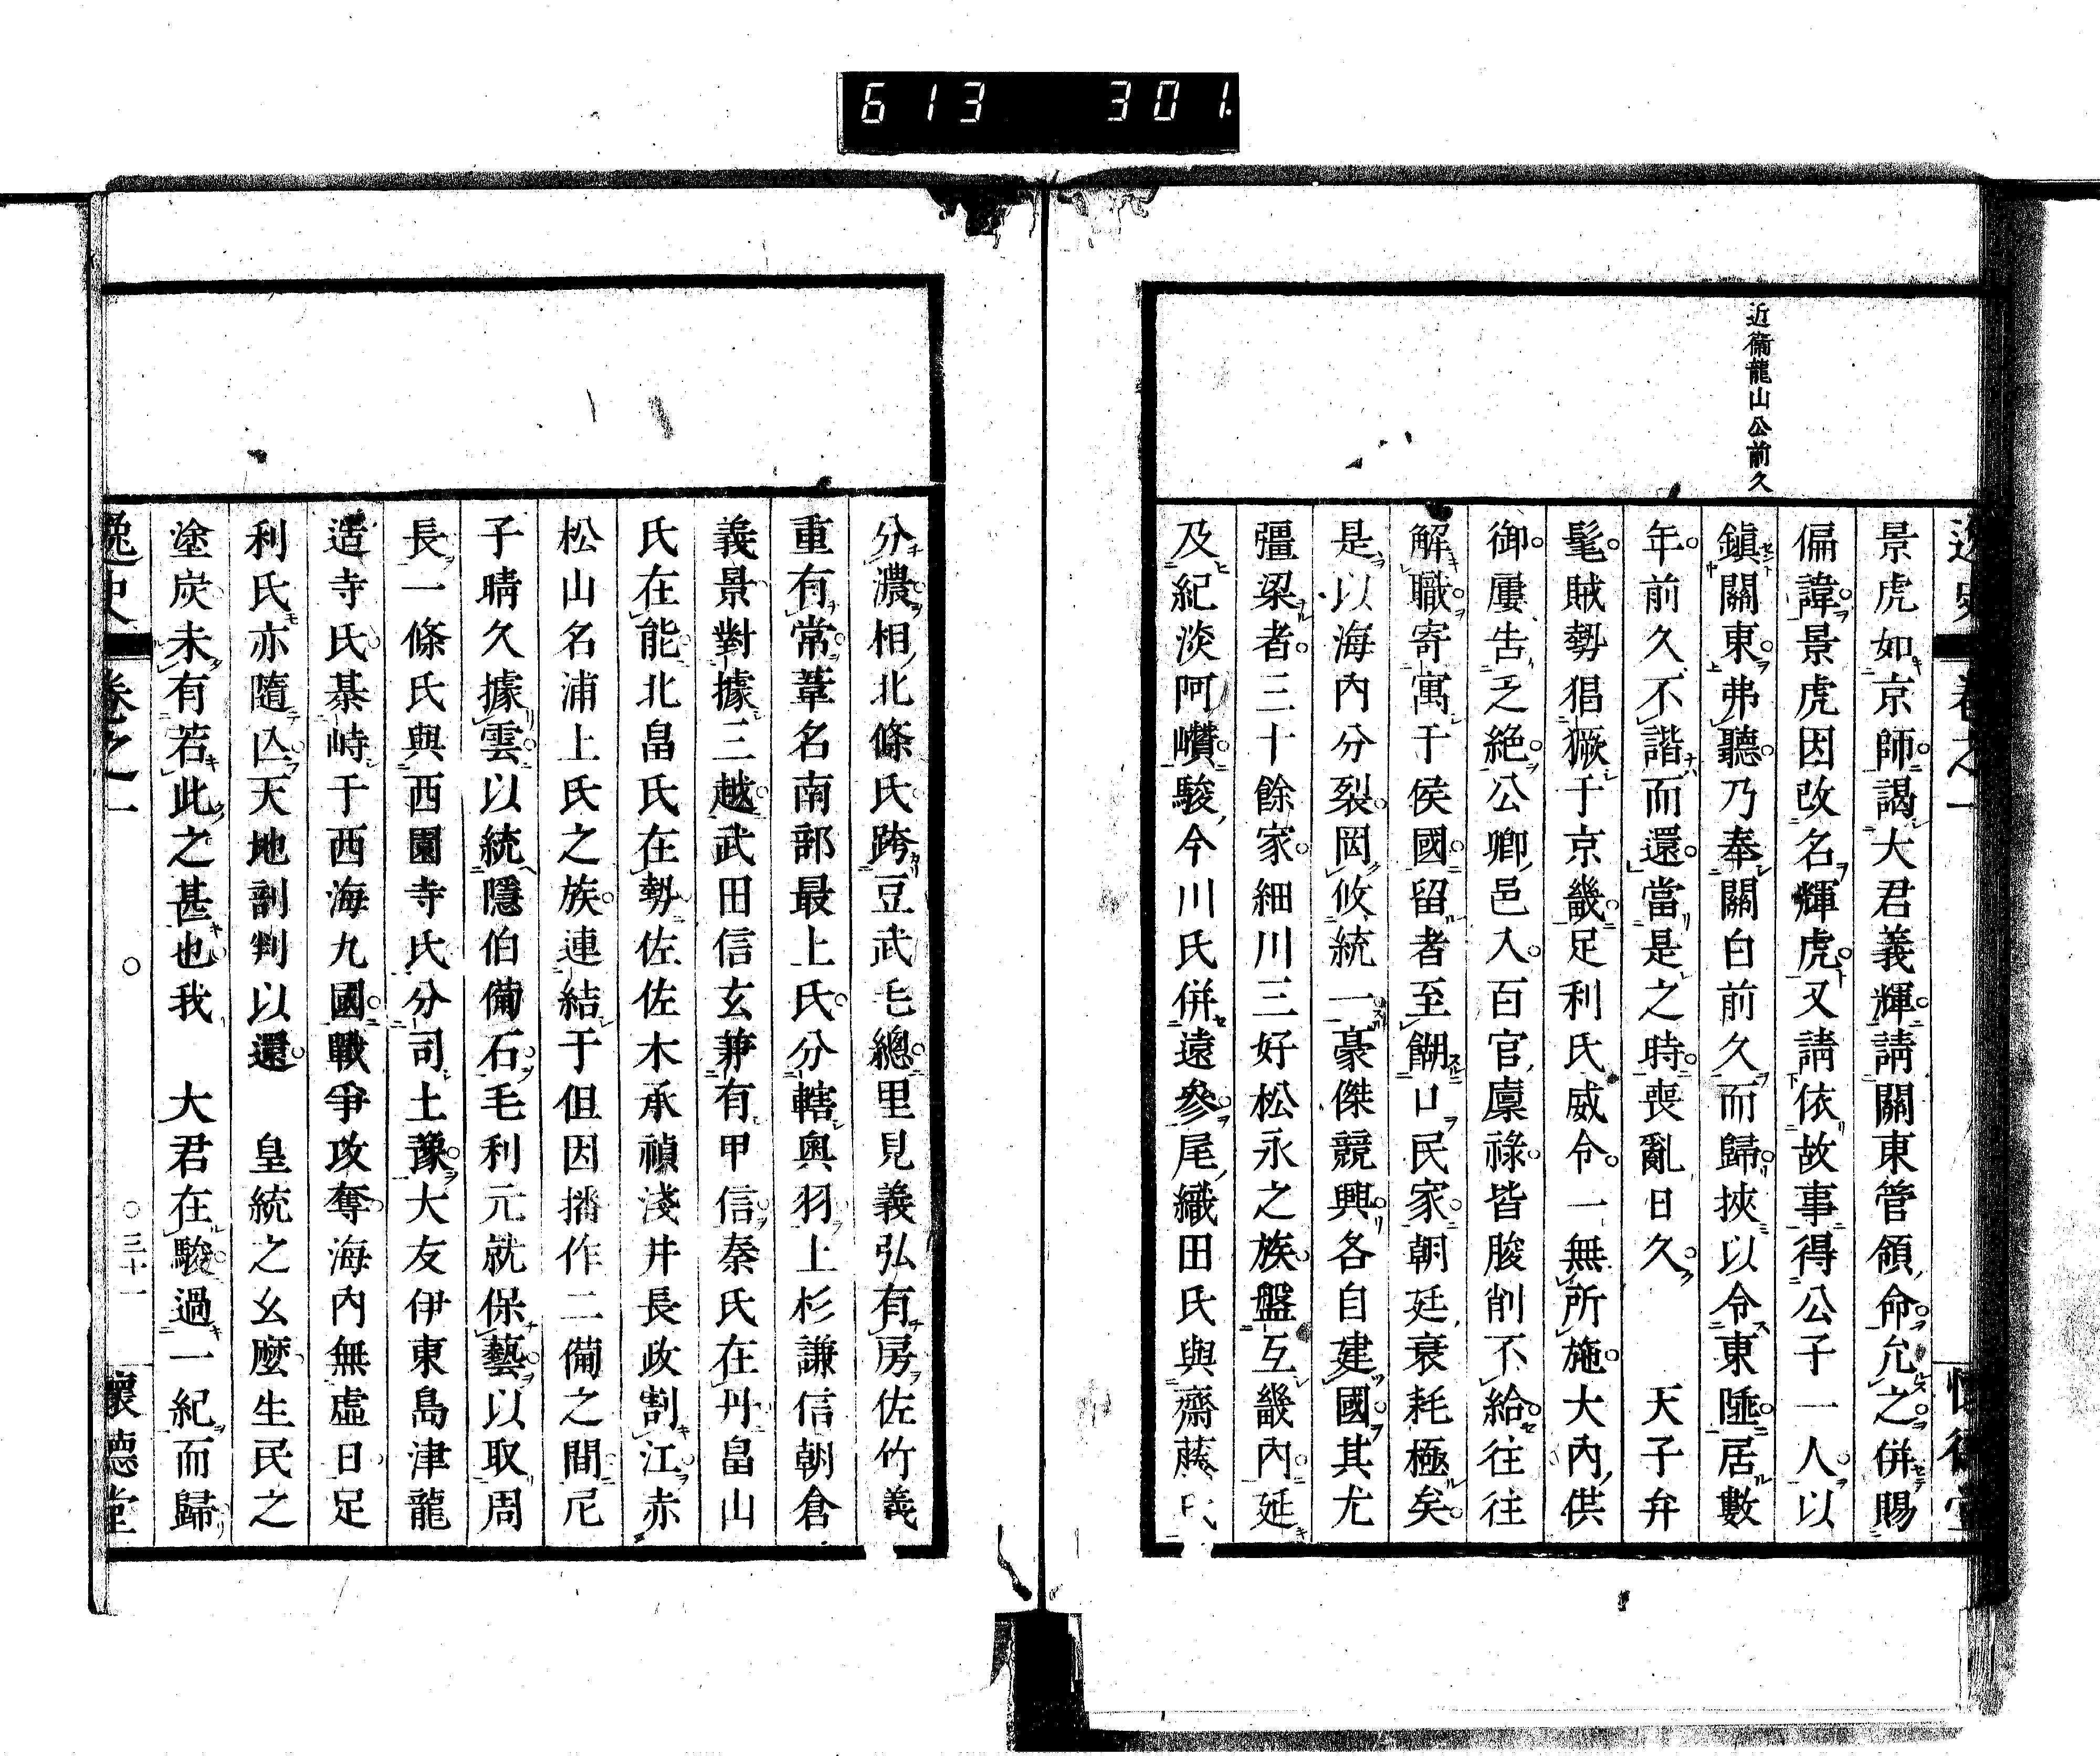 613 301
近衞龍山公前久
景虎如京師謁大君義輝請關東管領命允之併賜
偏諱景虎因改名輝虎又請依故事得公子一人以
鎭關東弗聽乃奉關白前久而歸挾以令東陲居數
年前久不諧而還當是之時喪亂日久 天子弁
髦賊勢猖獗于京畿足利氏威令一無所施大內供
御屢告乏絕公卿邑入百官廩祿皆朘削不給往往
解職寄寓于侯國留者至餬口民家朝廷衰耗極矣
是以海內分裂罔攸統一豪傑競興各自建國其尤
彊梁者三十餘家細川三好松永之族盤互畿內延
及紀淡阿讚駿今川氏併遠參尾織田氏與齋藤氏
分濃相北條氏跨豆武毛總里見義弘有房佐竹義
重有常葦名南部最上氏分轄奧羽上杉謙信朝倉
義景對據三越武田信玄兼有甲信秦氏在丹畠山
氏在能北畠氏在勢佐佐木承禎淺井長政割江赤
松山名浦上氏之族連結于但因播作二備之間尼
子晴久據雲以統隱伯備石毛利元就保藝以取周
長一條氏與西園寺氏分司土豫大友伊東島津龍
造寺氏棊峙于西海九國戰爭攻奪海內無虛日足
利氏亦隨亾天地剖判以還 皇統之幺麼生民之
塗炭未有若此之甚也我 大君在駿過一紀而歸
逸史 卷之一 ○ ○三十一 懷德堂